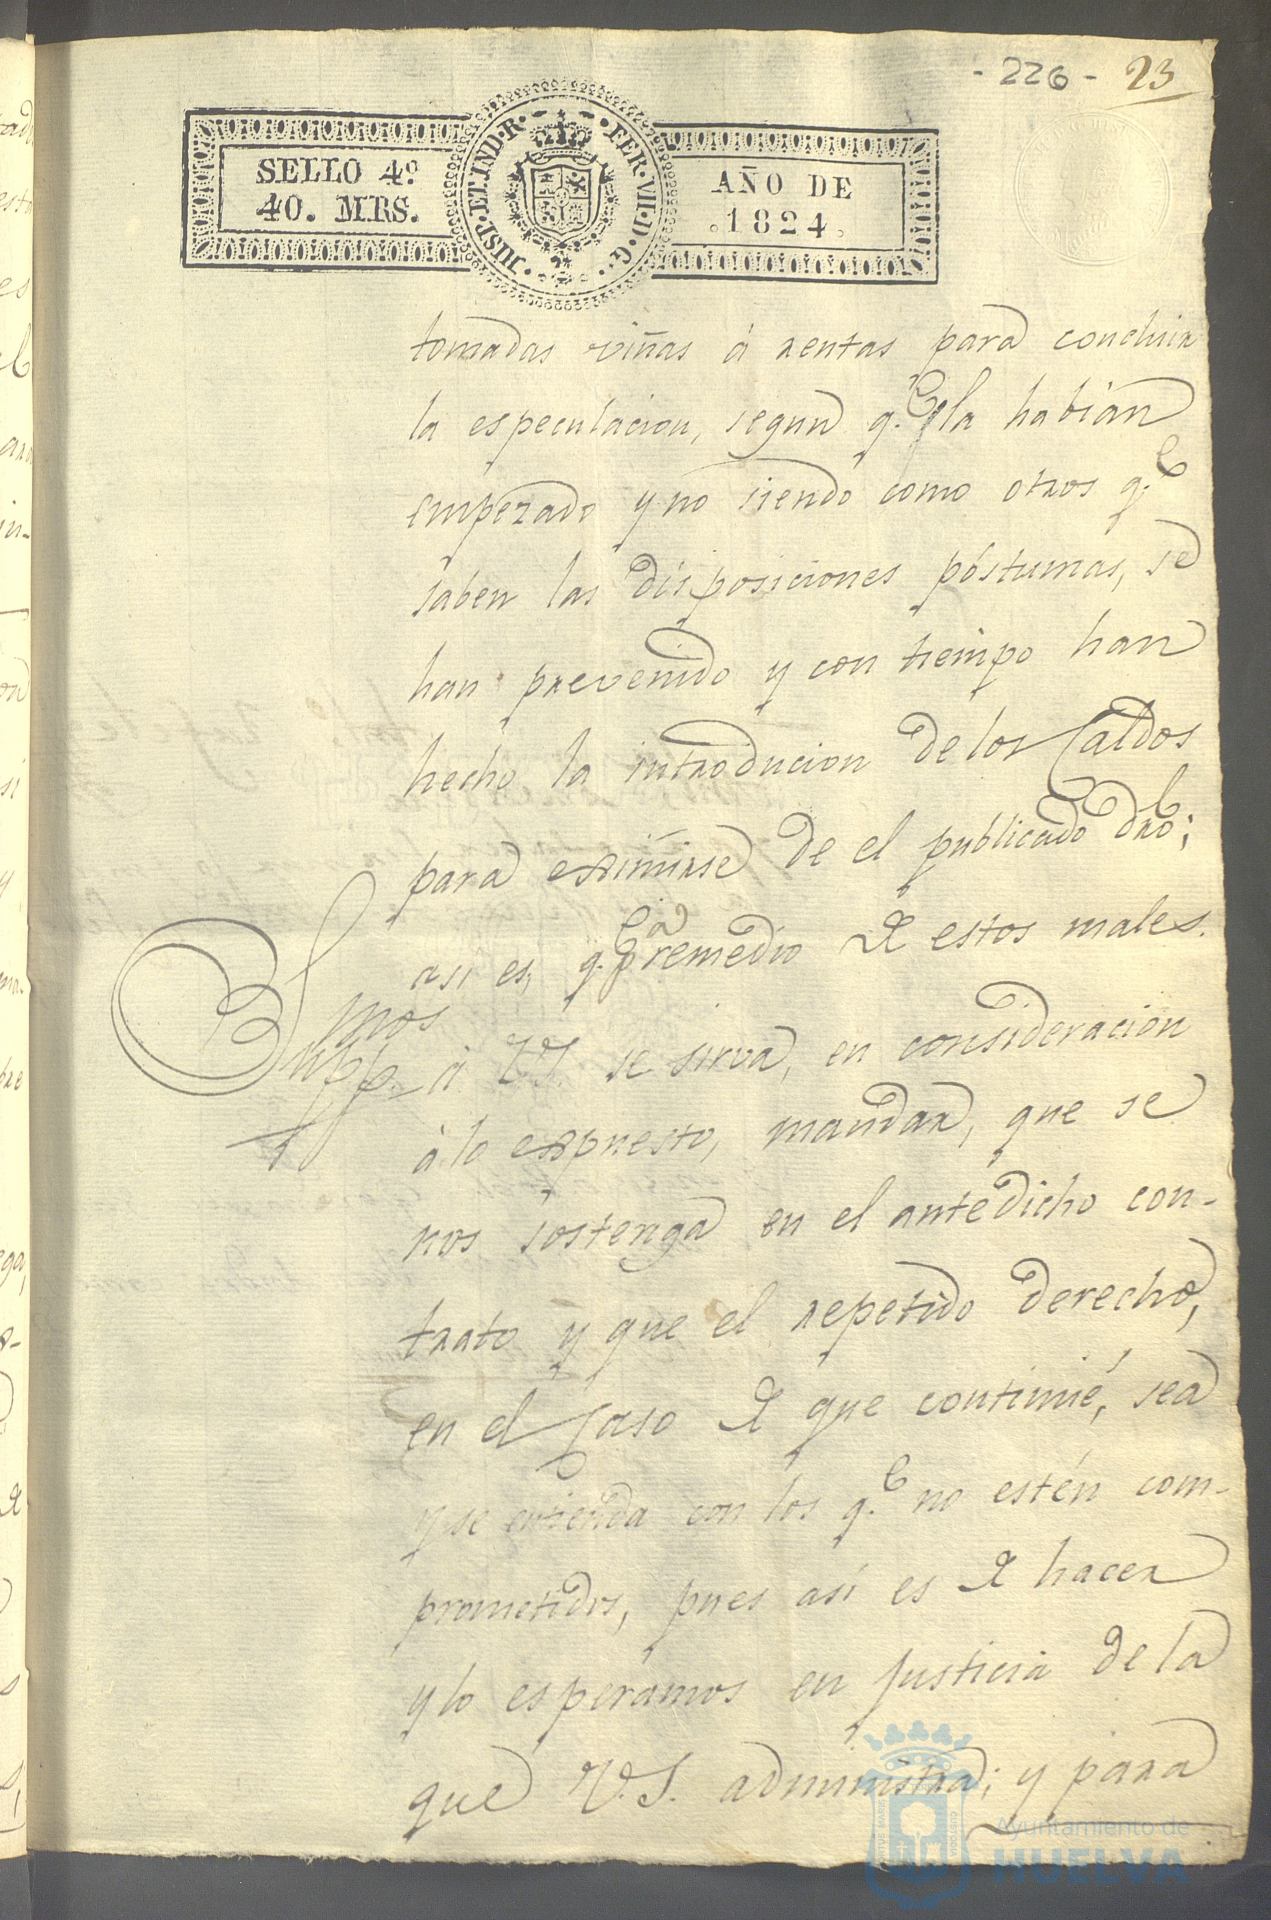 - 226 -
23
SELLO 4º
40. MRS.
HISP. ET IND. R. FER. VII. D. G.
AÑO DE
1824.
tomadas viñas á rentas para concluir
la especulacion, segun q.e la habian
empezado y no siendo como otros q.e
saben las disposiciones póstumas, se
han prevenido y con tiempo han
hecho la introducion de los Caldos
para eximirse de el publicado dro;
asi es, q.e p.a remedio de estos males.
Supp.mos á V.S. se sirva, en consideracion
á lo expuesto, mandar, que se
nos sostenga en el antedicho con-
trato y que el repetido derecho,
en el Caso de que continúe, sea
y se entienda con los q.e no estén com-
prometidos, pues así es de hacer
y lo esperamos en Justicia de la
que V.S. administra; y para
Ayuntamiento de
HUELVA